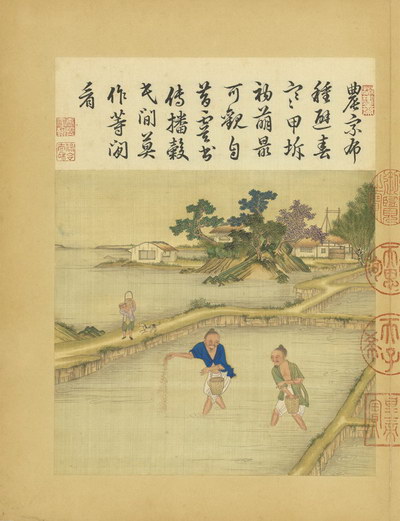 農家布
種避春
寒甲坼
初萌最
可觀自
昔虞書
傳播穀
民間莫
作等閒
看